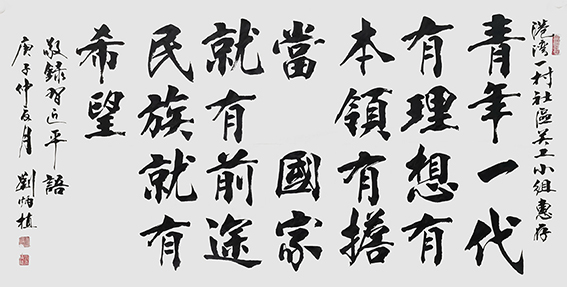 港湾一村社區关工小组惠存
青年一代
有理想有
本領有擔
當 國家
就有前途
民族就有
希望
敬録習近平語
庚子仲夏月 劉植